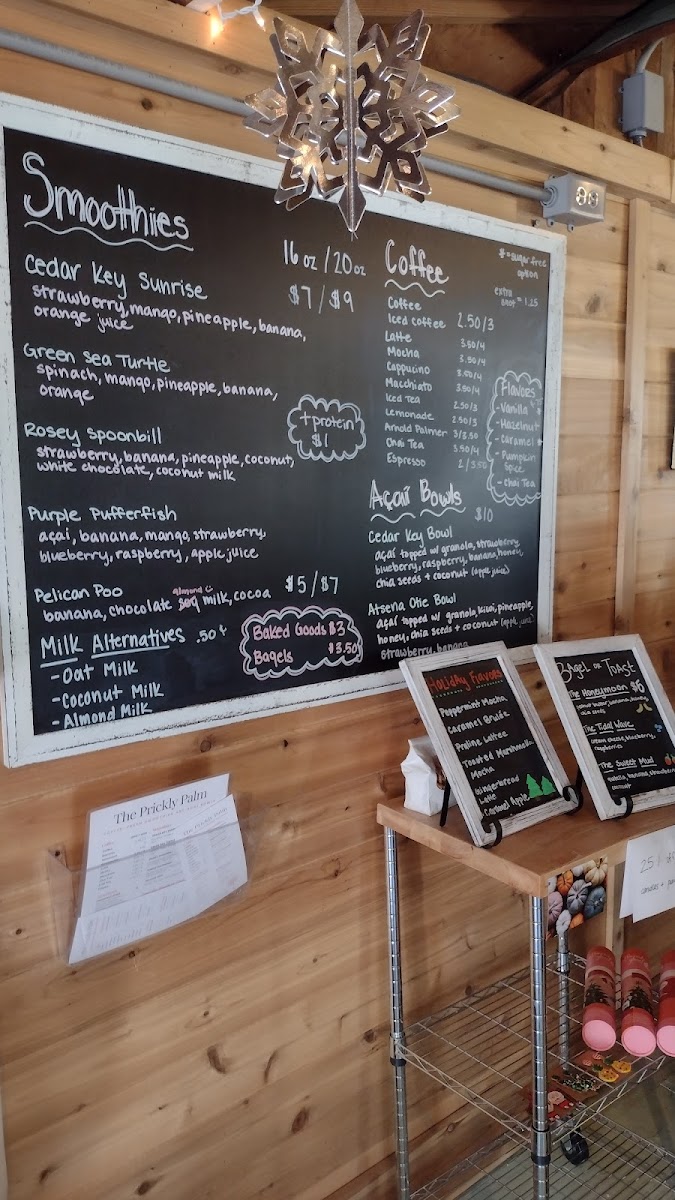 Smoothies
16 oz / 20 oz
$7 / $9
Cedar Key Sunrise
strawberry, mango, pineapple, banana,
orange juice
Green Sea Turtle
spinach, mango, pineapple, banana,
orange
+ protein
$1
Rosey Spoonbill
strawberry, banana, pineapple, coconut,
white chocolate, coconut milk
Purple Pufferfish
açai, banana, mango, strawberry,
blueberry, raspberry, apple juice
Pelican Poo $5 / $7
almond
banana, chocolate soy milk, cocoa
Milk Alternatives .50¢
- Oat Milk
- Coconut Milk
- Almond Milk
Baked Goods $3
Bagels $3.50
Coffee
* = sugar free
option
extra
shot = 1.25
Coffee
Iced coffee 2.50/3
Latte 3.50/4
Mocha 3.50/4
Cappucino 3.50/4
Macchiato 3.50/4
Iced Tea 2.50/3
Lemonade 2.50/3
Arnold Palmer 3/3.50
Chai Tea 3.50/4
Espresso 2/3.50
Flavors
- Vanilla *
- Hazelnut
- Caramel *
- Pumpkin
Spice
- Chai Tea
Açaí Bowls
$10
Cedar Key Bowl
açaí topped w/ granola, strawberry,
blueberry, raspberry, banana, honey,
chia seeds + coconut (apple juice)
Atsena Otie Bowl
açaí topped w/ granola, kiwi, pineapple,
honey, chia seeds + coconut (apple juice)
strawberry, banana
Holiday Flavors
Peppermint Mocha
Caramel Brulée
Praline Lattee
Toasted Marshmallow
Mocha
Gingerbread
Latte
Caramel Apple
Bagel or Toast
The Honeymoon $6
peanut butter, banana, honey,
chia seeds
The Tidal Wave
cream cheese, blueberry,
raspberries
The Sweet Mud
nutella, banana, strawberry
coconut
The Prickly Palm